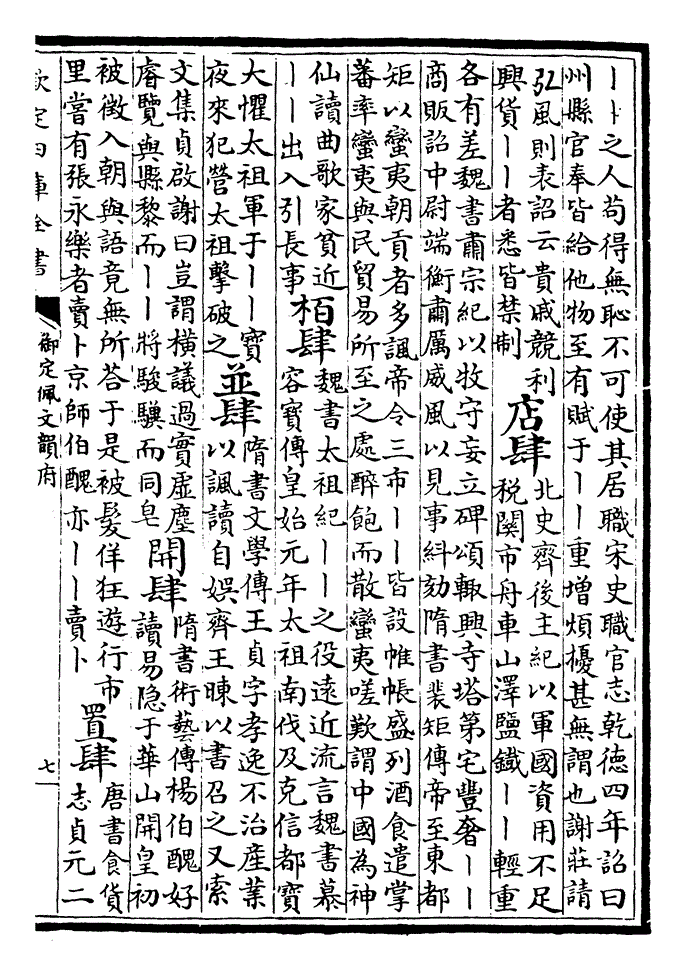 丨丨之人苟得無恥不可使其居職宋史職官志乾德四年詔曰
州縣官奉皆給他物至有賦于丨丨重增煩擾甚無謂也謝莊請
弘風則表詔云貴戚競利
興貨丨丨者悉皆禁制
店肆
北史齊後主紀以軍國資用不足
税關市舟車山澤鹽鐵丨丨輕重
各有差魏書肅宗紀以牧守妄立碑頌輒興寺塔第宅豐奢丨丨
商販詔中尉端衡肅厲威風以見事糾劾隋書裴矩傳帝至東都
矩以蠻夷朝貢者多諷帝令三市丨丨皆設帷帳盛列酒食遣掌
蕃率蠻夷與民貿易所至之處醉飽而散蠻夷嗟歎謂中國為神
仙讀曲歌家貧近
丨丨出入引長事
栢肆
魏書太祖紀丨丨之役遠近流言魏書慕
容寶傳皇始元年太祖南伐及克信都寶
大懼太祖軍于丨丨寶
夜來犯營太祖擊破之
並肆
隋書文學傳王貞字孝逸不治産業
以諷讀自娯齊王暕以書召之又索
文集貞啟謝曰豈謂横議過實虛塵
睿覽與縣黎而丨丨將駿驥而同皂
開肆
隋書術藝傳楊伯醜好
讀易隱于華山開皇初
被徴入朝與語竟無所答于是被髮佯狂遊行市
里嘗有張永樂者賣卜京師伯醜亦丨丨賣卜
置肆
唐書食貨
志貞元二
欽定四庫全書
御定佩文韻府
七